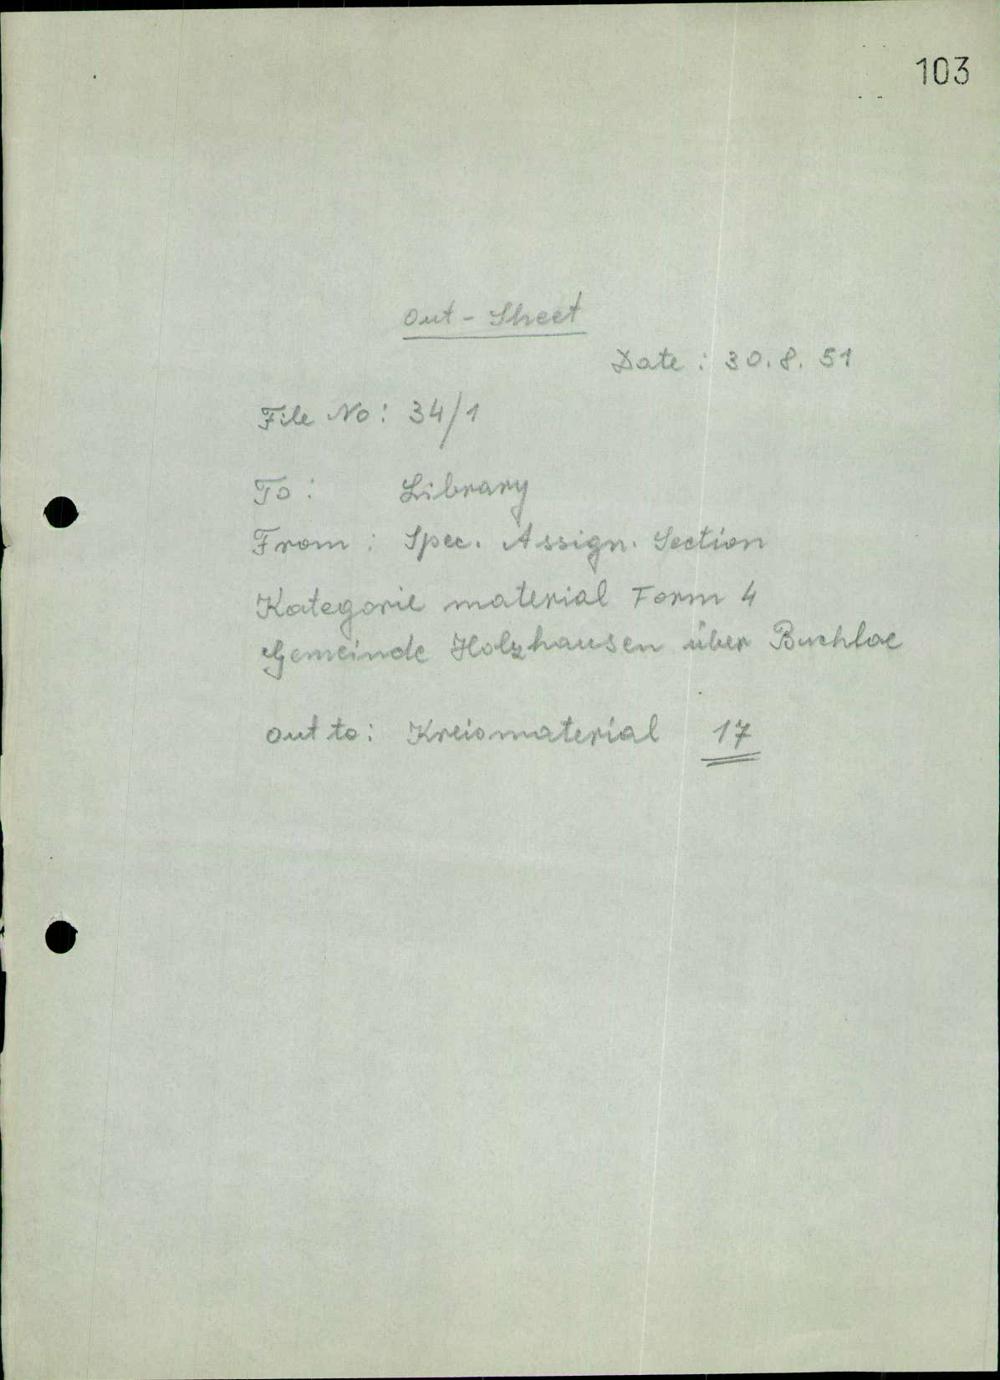 103
Out - Sheet
Date : 30. 8. 51
File No : 34/1
To : Library
From : Spec. Assign. Section
Kategorie material Form 4
Gemeinde Holzhausen über Buchloe
out to : Kreismaterial 17